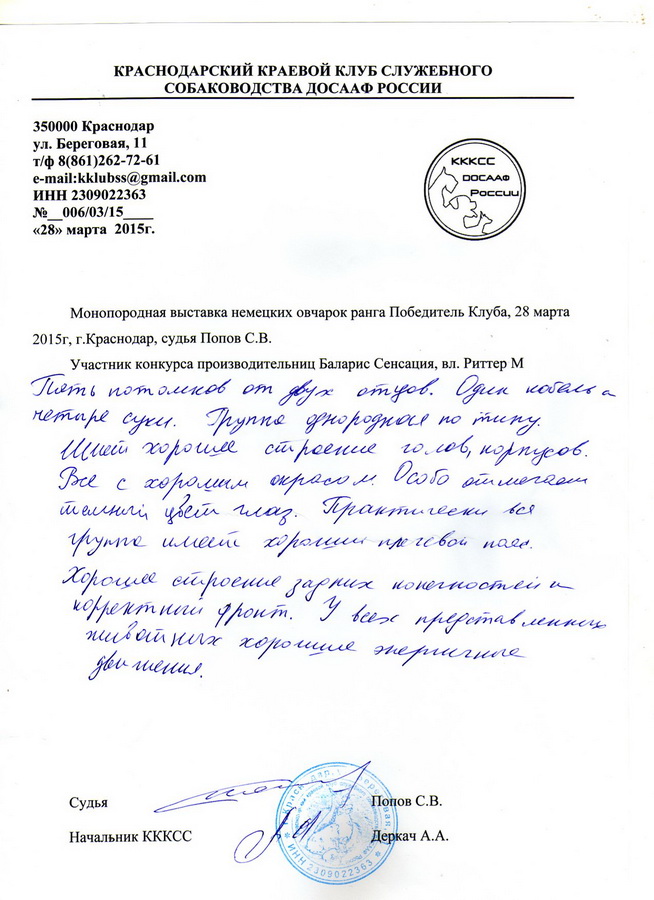 КРАСНОДАРСКИЙ КРАЕВОЙ КЛУБ СЛУЖЕБНОГО
СОБАКОВОДСТВА ДОСААФ РОССИИ
350000 Краснодар
ул. Береговая, 11
т/ф 8(861)262-72-61
e-mail:kklubss@gmail.com
ИНН 2309022363
№__006/03/15____
«28» марта 2015г.
КККСС
ДОСААФ
России
Монопородная выставка немецких овчарок ранга Победитель Клуба, 28 марта
2015г, г.Краснодар, судья Попов С.В.
Участник конкурса производительниц Баларис Сенсация, вл. Риттер М
Пять потомков от двух отцов. Один кобель и
четыре суки. Группа однородная по типу.
Имеет хорошее строение голов, корпусов.
Все с хорошим окрасом. Особо отмечаем
темный цвет глаз. Практически вся
группа имеет хороший плечевой пояс.
Хорошее строение задних конечностей и
корректный фронт. У всех представленных
животных хорошие энергичные
движения.
Судья Попов С.В.
Начальник КККСС Деркач А.А.
ИНН 2309022363